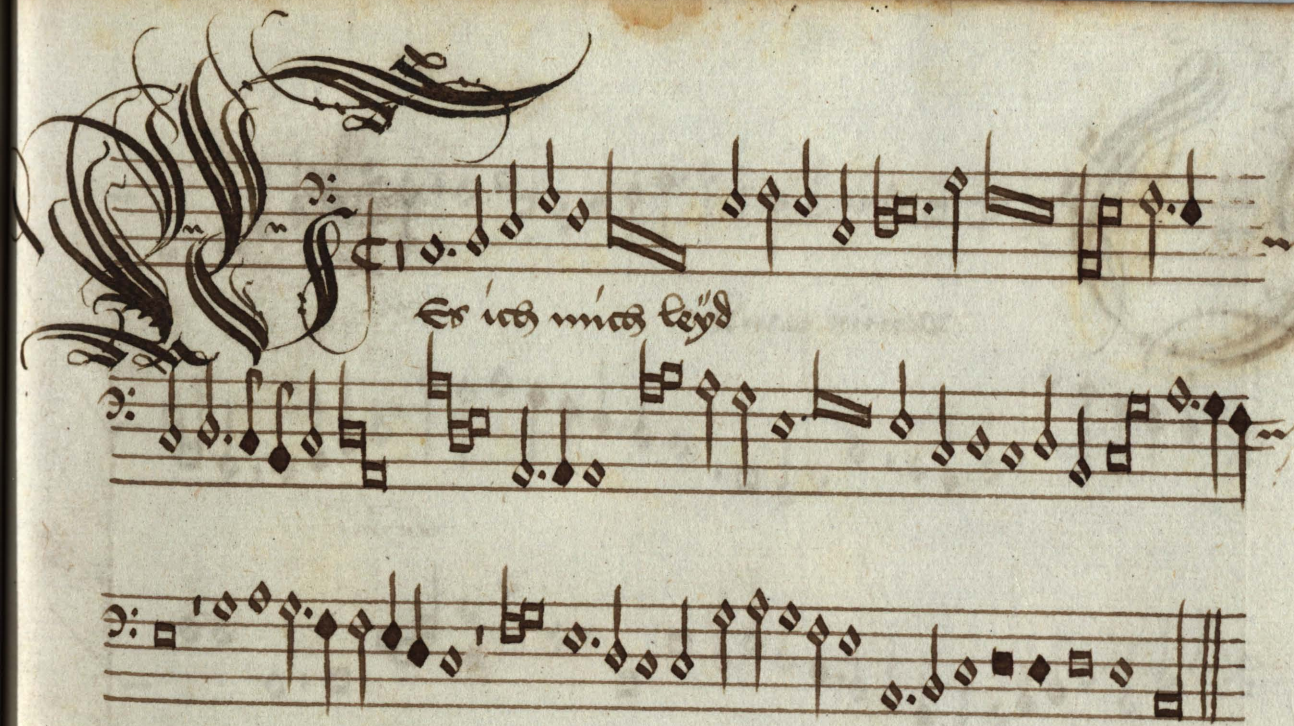 WEs ich mich leÿd